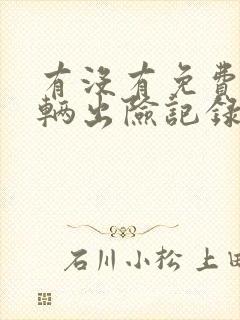 有沒有免費
輛出險記錄
石川小松 上田